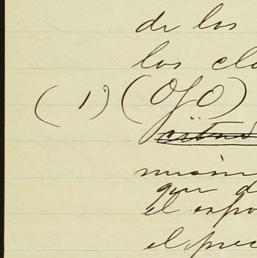 de los
los cla
(1) (Ojo)
que d
el espo
el prec